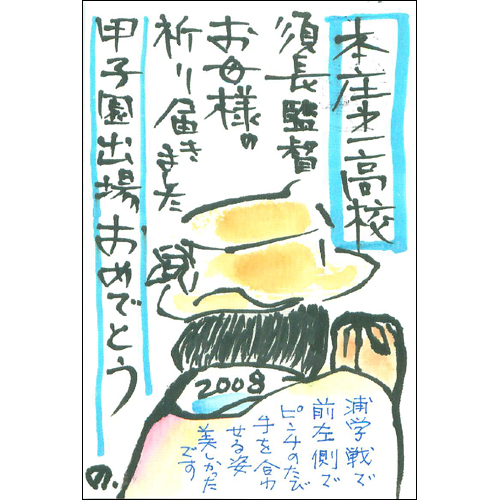 本庄第一高校
須長監督
お母様の
祈り届きました
甲子園出場おめでとう
2008
浦学戦で
前左側で
ピンチのたび
手を合わ
せる姿
美しかった
です
の.